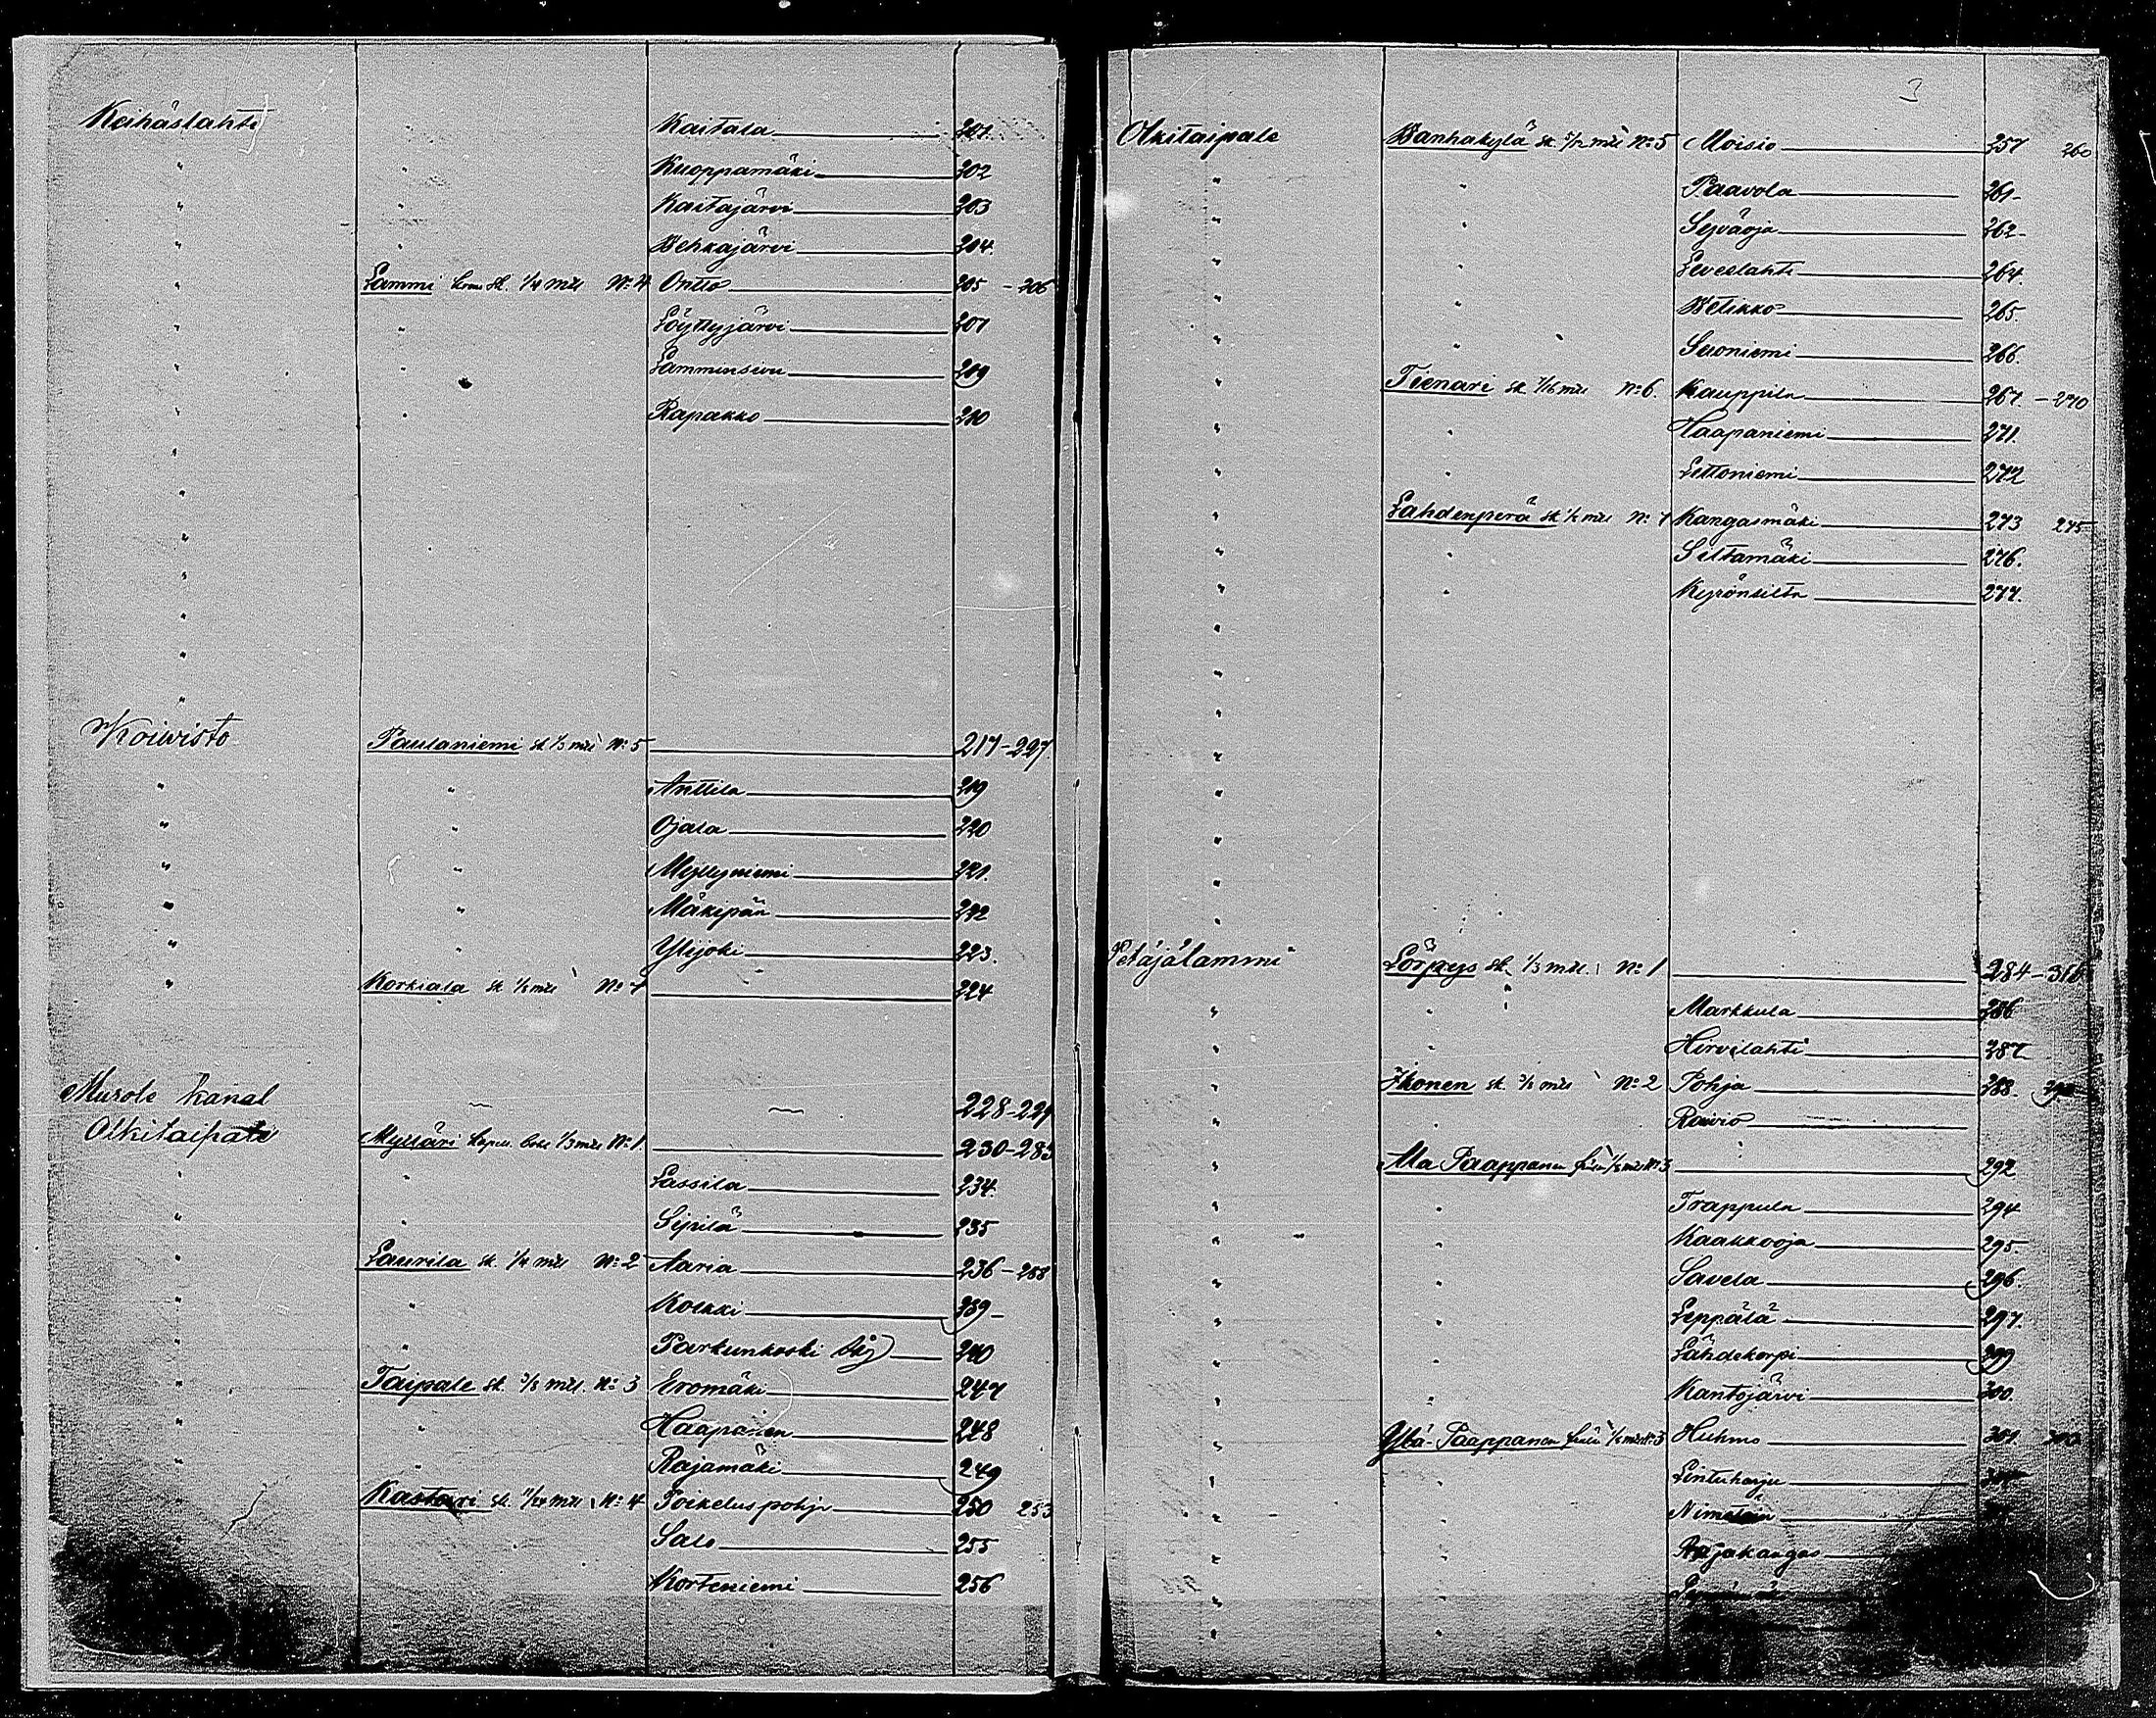 Keihäslahti " Kaitala 201.
" " Kuoppamäki 202
" " Kaitajärvi 203
" " Vehkajärvi 204.
" Lammi sk. 1/4 mtl No 4 Ontto 205 - 206
" " Löyttyjärvi 207
" " Lamminsivu 209
" " Rapakko 210
Koivisto Paulaniemi sk 1/3 mtl No 5 217-227
" " Anttila 219
" " Ojala 220
" " Myllyniemi 221.
" " Mäkipää 222
" " Ylijoki 223.
" Korkiala sk 224
Murole kanal 228-229
Olkitaipale Mylläri 1/3 mtl No 1. 230-283
" " Lassila 234.
" " Sipilä 235
" Laurila sk. 1/4 mtl No 2 Aaria 236-238
" " Kolkki 239-
" " Parkunkoski 240
" Taipale sk. 3/8 mtl. No 3 Eromäki 247
" " Haapanen 248
" " Rajamäki 249
" Kastari sk. 11/24 mtl No 4 Poikeluspohja 250 253
" Salo 255
Korteniemi 256
3
Olkitaipale Vanhakylä sk. 5/12 mtl No 5 Moisio 257 260
" " Paavola 261-
" " Syväoja 262-
" " Leveelahti 264.
" " Vetikko 265.
" " Suoniemi 266.
" Tienari sk. 7/16 mtl No 6. Kauppila 267. - 270
" " Haapaniemi 271.
" " Lettoniemi 272
" Lahdenperä sk Kangasmäki 273 275
" " Siltamäki 276.
" " Kyrönsilta 277.
Petäjälammi Lörpys sk. 1/3 mtl. No 1 284-316
" " Markkula 286
" " Hirvilahti 287
" Ikonen sk. 3/8 mtl No 2 Pohja 288.
" " Raivio
" Ala Paappanen No 3 292
" " Trappula 294
" " Kaakkooja 295.
" " Savela 296.
" " Leppälä 297.
" " Lähdekorpi 299
" " Kantojärvi 300.
" Ylä-Paappanen No 3 Huhmo 301.
" " Lintuharju
" "
" " Rajakangas